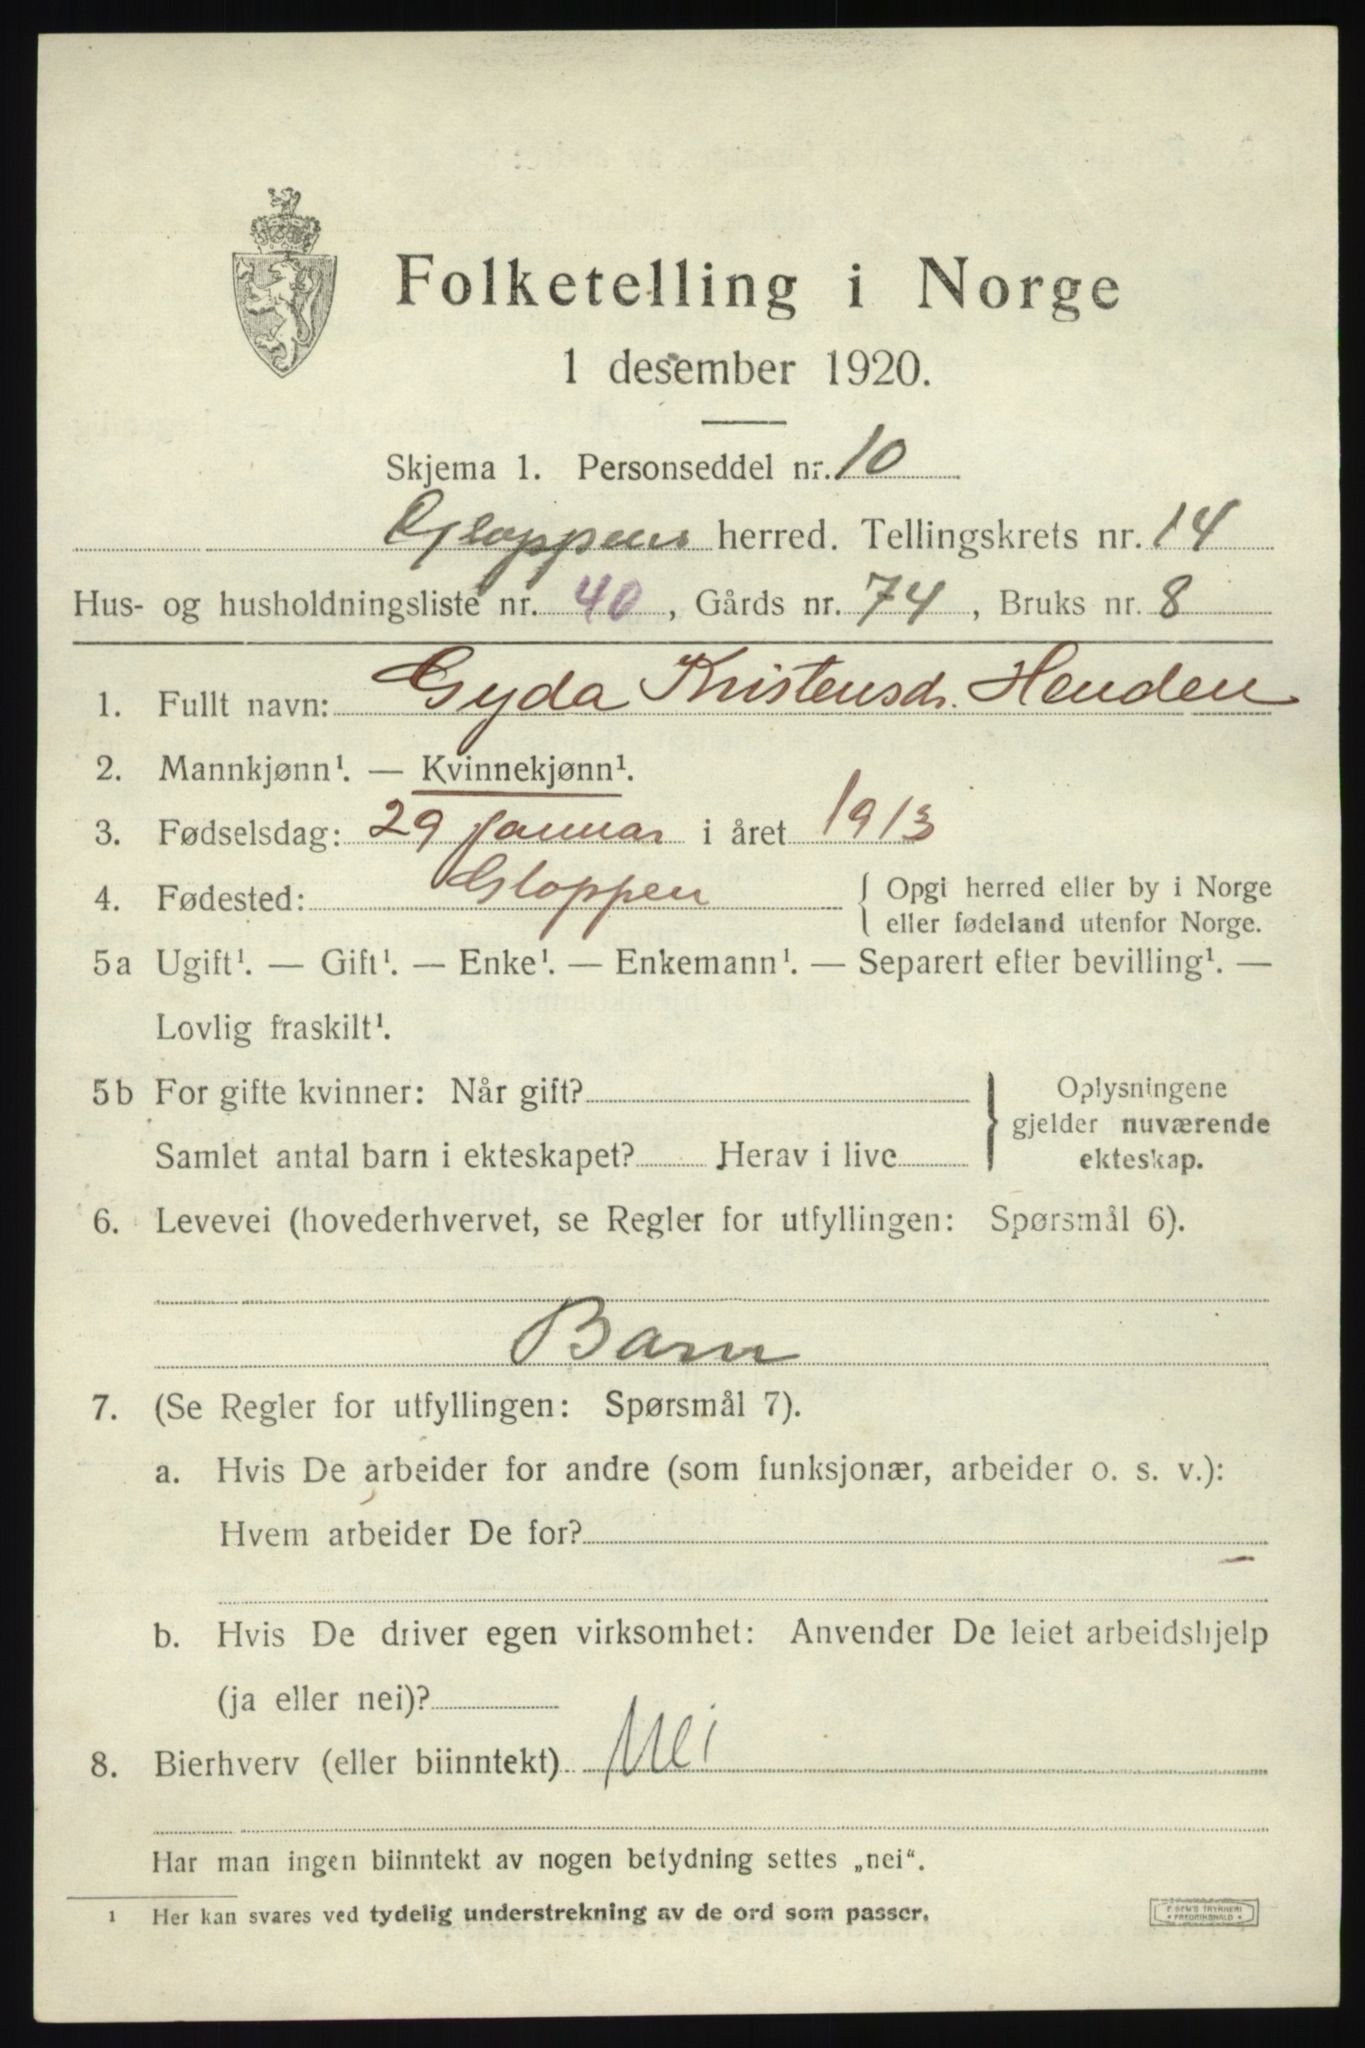 Folketelling i Norge
1 desember 1920.
Skjema 1. Personseddel nr. 10
Gloppens herred. Tellingskrets nr. 14
Hus- og husholdningsliste nr. 40, Gårds nr. 74, Bruks nr. 8
1. Fullt navn: Gyda Kristensdr. Henden
2. Mannkjønn¹. — Kvinnekjønn¹.
3. Fødselsdag: 29 januar i året 1913
4. Fødested: Gloppen { Opgi herred eller by i Norge
eller fødeland utenfor Norge.
5a Ugift¹. — Gift¹. — Enke¹. — Enkemann¹. — Separert efter bevilling¹. —
Lovlig fraskilt¹.
5b For gifte kvinner: Når gift? } Oplysningene
gjelder nuværende
Samlet antal barn i ekteskapet? Herav i live ekteskap.
6. Levevei (hovederhvervet, se Regler for utfyllingen: Spørsmål 6).
Barn
7. (Se Regler for utfyllingen: Spørsmål 7).
a. Hvis De arbeider for andre (som funksjonær, arbeider o. s. v.):
Hvem arbeider De for?
b. Hvis De driver egen virksomhet: Anvender De leiet arbeidshjelp
(ja eller nei)?
8. Bierhverv (eller biinntekt) Nei
Har man ingen biinntekt av nogen betydning settes „nei“.
¹ Her kan svares ved tydelig understrekning av de ord som passer.
F. SEM'S TRYKKERI
• FREDRIKSHALD •